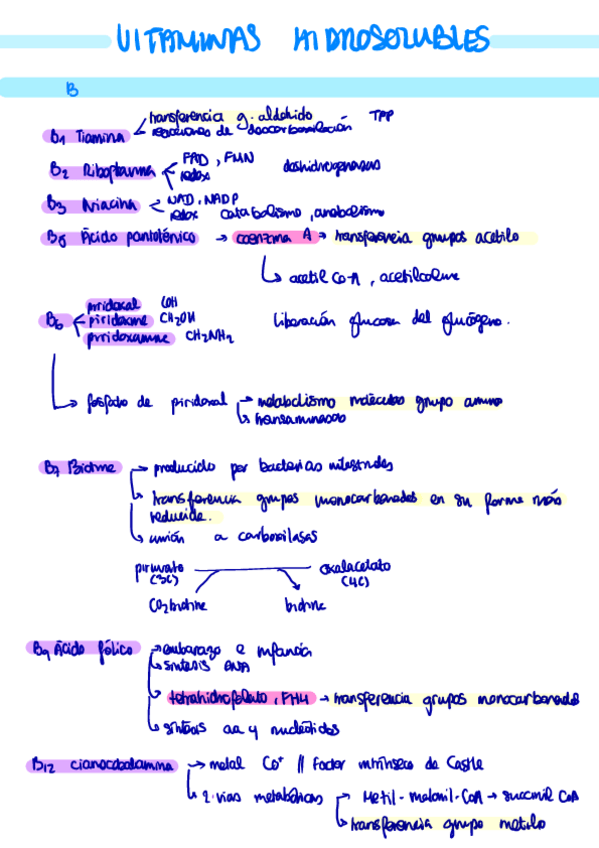 VITAMINAS HIDROSOLUBLES
B
B1 Tiamina transferencia g. aldehido TPP
reacciones de descarboxilación
B2 Riboflavina FAD, FMN deshidrogenasas
redox
B3 Niacina NAD, NADP
redox catabolismo, anabolismo
B5 Ácido pantoténico → coenzima A → transferencia grupos acetilo
acetil Co-A, acetilcolina
B6 piridoxal COH
piridoxina CH2OH Liberación glucosa del glucógeno.
piridoxamina CH2NH2
fosfato de piridoxal → metabolismo moléculas grupo amino
transaminasas
B7 Biotina → producido por bacterias intestinales
transferencia grupos monocarbonados en su forma más
reducida.
unión a carboxilasas
piruvato oxalacetato
(3C) (4C)
CO2 biotina biotina
B9 Ácido fólico embarazo e infancia
síntesis DNA
tetrahidrofolato, FH4 → transferencia grupos monocarbonados
síntesis aa y nucleótidos
B12 cianocobalamina → metal Co+ // Factor intrínseco de Castle
2 vías metabólicas → Metil-malonil-CoA → succinil CoA
transferencia grupo metilo